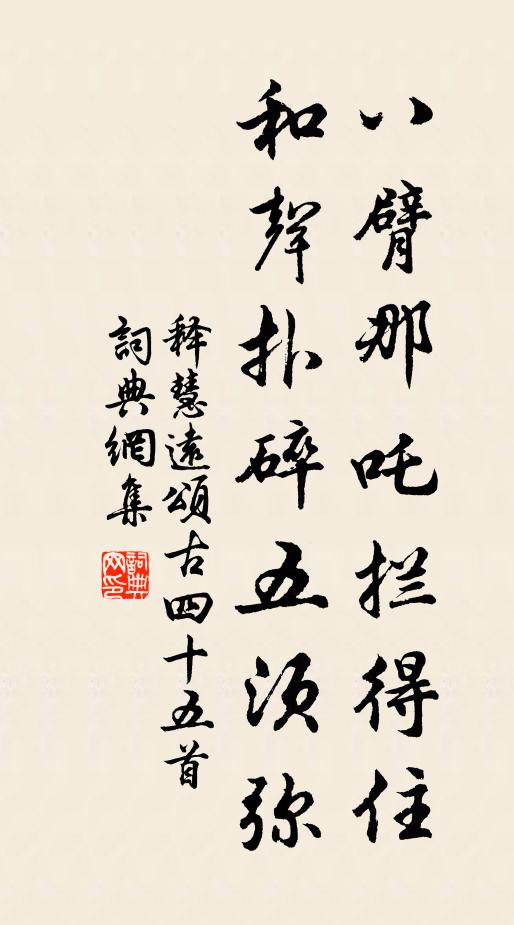 八臂那吒拦得住
和聲扑碎五須弥
释慧遠頌古四十五首
詞典網集
詞典網印